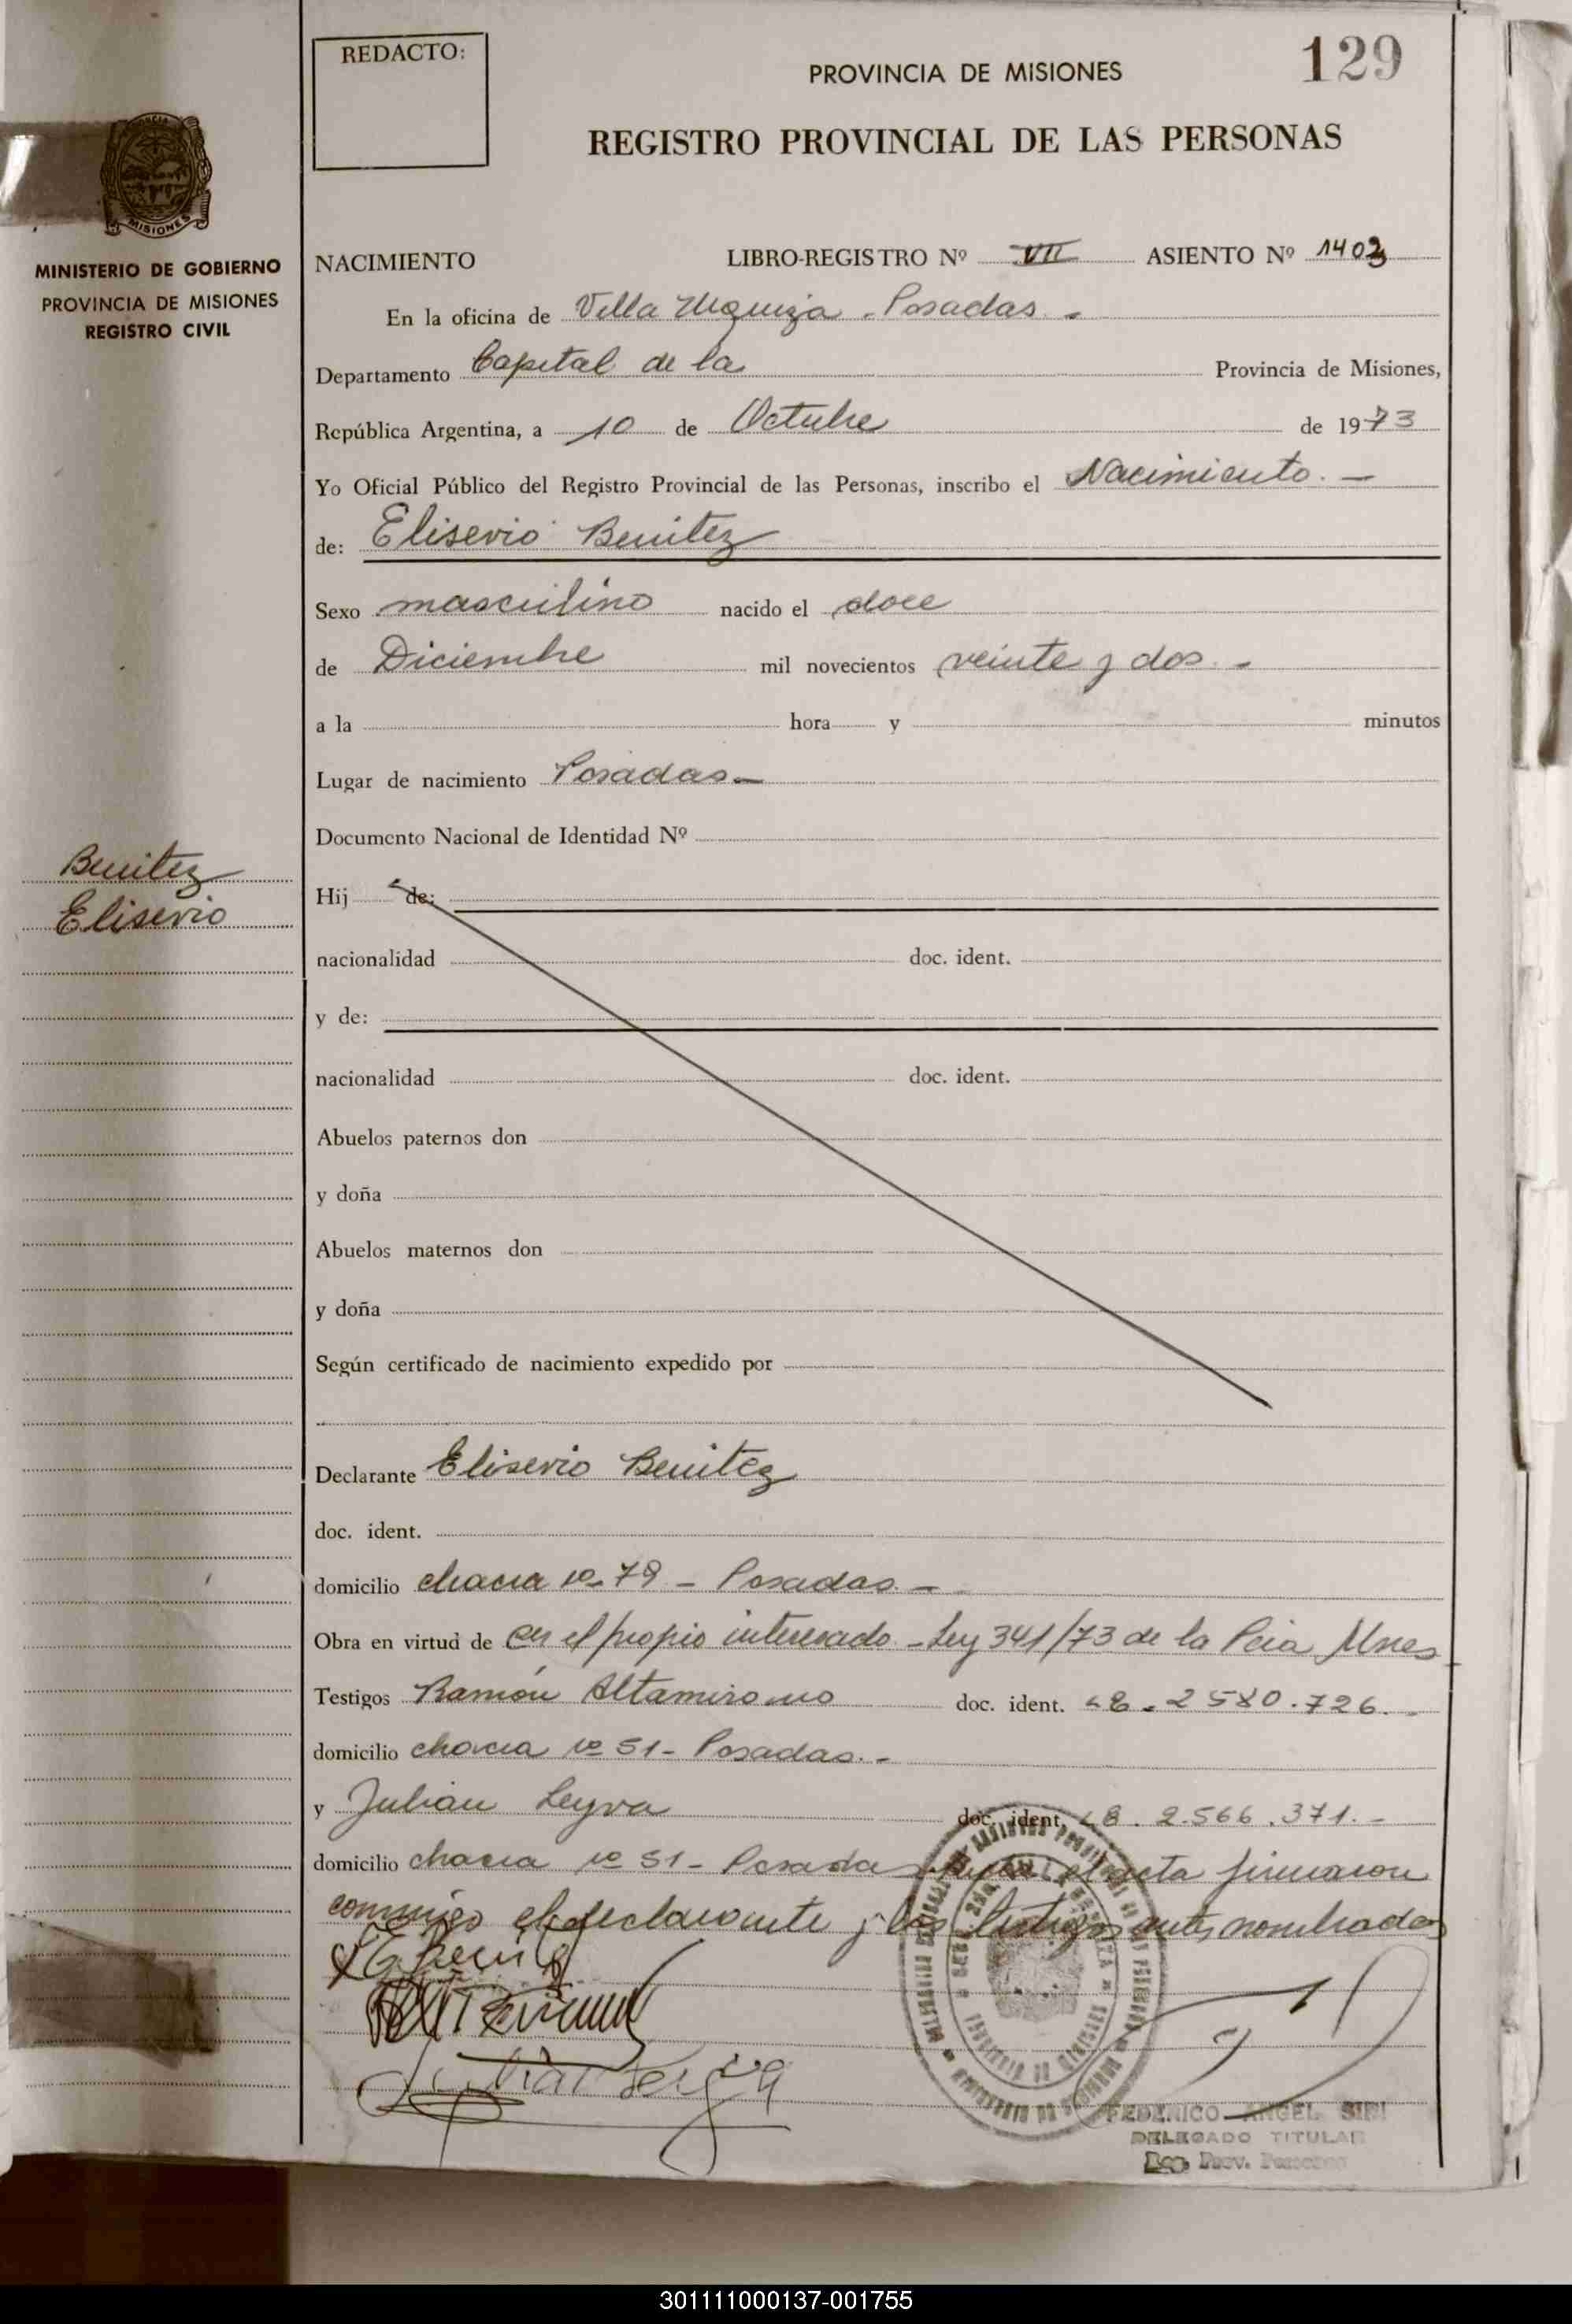 REDACTO:
129
PROVINCIA DE MISIONES
REGISTRO PROVINCIAL DE LAS PERSONAS
MISIONES
MINISTERIO DE GOBIERNO
PROVINCIA DE MISIONES
REGISTRO CIVIL
NACIMIENTO LIBRO-REGISTRO Nº VII ASIENTO Nº 1403
En la oficina de Villa Urquiza - Posadas. -
Departamento Capital de la Provincia de Misiones,
República Argentina, a 10 de Octubre de 1973
Yo Oficial Público del Registro Provincial de las Personas, inscribo el Nacimiento. -
de: Eliserio Benitez
Sexo masculino nacido el doce
de Diciembre mil novecientos veinte y dos. -
a la hora y minutos
Lugar de nacimiento Posadas -
Documento Nacional de Identidad Nº
Benitez
Eliserio
Hij de:
nacionalidad doc. ident.
y de:
nacionalidad doc. ident.
Abuelos paternos don
y doña
Abuelos maternos don
y doña
Según certificado de nacimiento expedido por
Declarante Eliserio Benitez
doc. ident.
domicilio chacra nº 79 - Posadas. -
Obra en virtud de en el propio interesado - Ley 341/73 de la Pcia Mnes
Testigos Ramón Altamirano doc. ident. LE. 2580.726. -
domicilio chacra nº 51 - Posadas. -
y Julian Leyva doc. ident. LE. 2.566.371. -
domicilio chacra nº 51 - Posadas el acta firmaron
conmigo el declarante y los testigos antes nombrados
Julian Leyva
FEDERICO ANGEL SIRI
DELEGADO TITULAR
Reg. Prov. Personas
301111000137-001755